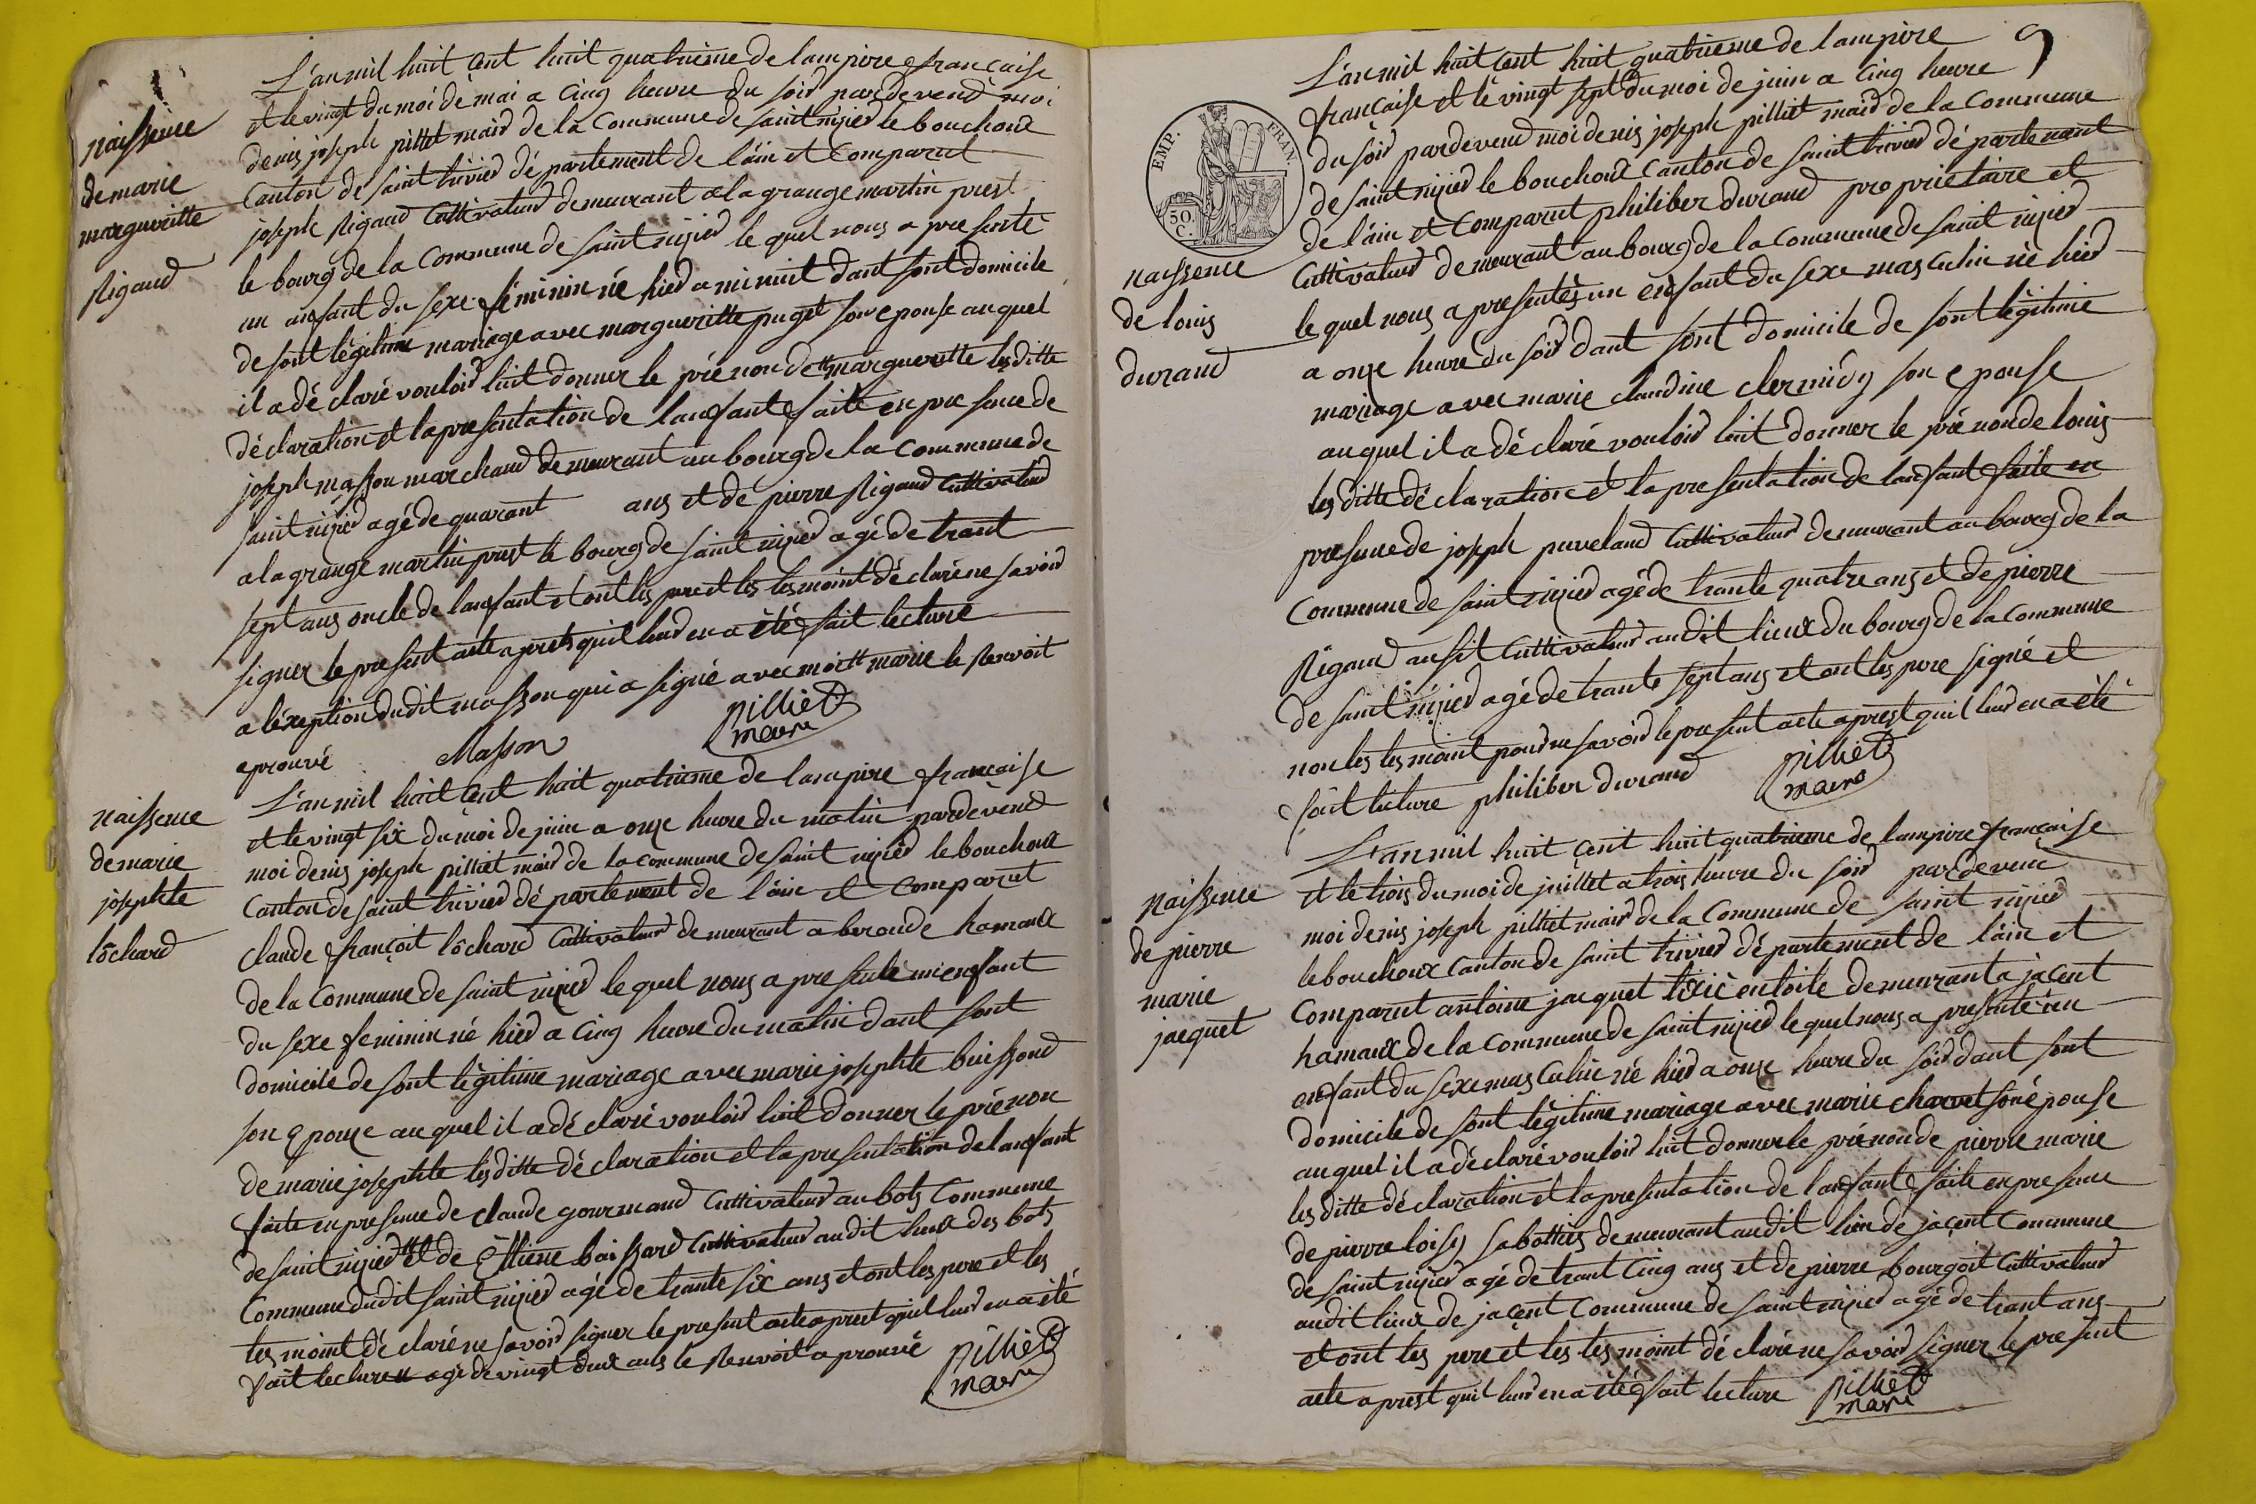 naissence
de marie
margueritte
Rigaud
L'an mil huit cent huit quatrieme de lampire francaise
et le vingt du moi de mai a cinq heure du soir pardevend moi
denis joseph pilliet maire de la commune de saint nizied le bouchoux
canton de saint trivied département de l'ain et comparut
joseph Rigaud cultivateur demeurant a la grange martin prest
le bourg de la commune de saint nizied le quel nous a presenté
un anfant du sexe féminin né hied a minuit dant sont domicile
de sont légitime mariage avec margueritte puget son epouse auquel
il a déclaré vouloir luit donner le prénon de margueritte lesditte
déclaration et la presentation de lanfant faite en presence de
joseph masson marchand demeurant au bourg de la commune de
saint nizied agé de quarant ans et de pierre Rigaud cultivateur
a la grange martin prest le bourg de saint nizied agé de trant
sept ans oncle de lanfant et ont les pere et les tesmoint déclaré ne savoir
signer le present acte aprest quil leur en a été fait lecture
a léxeption dudit masson qui a signé avec moi # marie le Renvoit
aprouvé Masson pilliet
maire
naissence
de marie
josephte
lôchard
L'an mil huit cent huit quatrieme de lampire francaise
et le vingt six du moi de juin a onze heure du matin pardevend
moi denis joseph pilliet maire de la commune de saint nizied le bouchoux
canton de saint trivied département de l'ain et comparut
claude françoit lôchard cultivateur demeurant a beroude hamaux
de la commune de saint nizied le quel nous a presenté un enfant
du sexe feminin né hied a cinq heure du matin dant sont
domicile de sont légitime mariage avec marie josephte buissond
son epouze auquel il a déclaré vouloir luit donner le prénon
de marie josephte lesditte déclaration et la presentation de lanfant
faite en presence de claude gourmand cultivateur au bots commune
de saint nizied # et de Ettiene buissard cultivateur audit lieux des bots
commune dudit saint nizied agé de trante six ans et ont les pere et les
tesmoint déclaré ne savoir signer le present acte aprest quil leur en a été
fait lecture # agé de vingt deux ans le Renvoit aprouvé pilliet
maire
9
EMP. FRAN.
50.
C.
naissence
de louis
durand
L'an mil huit cent huit quatrieme de lampire
francaise et le vingt sept du moi de juin a cinq heure
du soir pardevend moi denis joseph pilliet maire de la commune
de saint nizied le bouchoux canton de saint trivied département
de l'ain et comparut philiber durand proprietaire et
cultivateur demeurant au bourg de la commune de saint nizied
le quel nous a presentés un enfant du sexe masculin né hied
a onze heure du soir dant sont domicile de sont légitime
mariage avec marie claudine clermidy son epouse
auquel il a déclaré vouloir luit donner le prénon de louis
lesditte déclaration et la presentation de lanfant faite en
presence de joseph puveland cultivateur demeurant au bourg de la
commune de saint nizied agé de trante quatre ans et de pierre
Rigaud ausit cultivateur audit lieux du bourg de la commune
de saint nizied agé de trante sept ans et ont les pere signé et
non les tesmoint pour ne savoir le present acte aprest quil leur en a été
fait lecture philiber durand pilliet
maire
naissence
de pierre
marie
jacquet
L'an mil huit cent huit quatrieme de lampire francaise
et le trois du moi de juillet a trois heure du soir pardevend
moi denis joseph pilliet maire de la commune de saint nizied
le bouchoux canton de saint trivied département de l'ain et
comparut antoine jacquet tixié en toile demeurant a jacent
hamaux de la commune de saint nizied le quel nous a presenté un
enfant du sexe masculin né hied a onze heure du soir dant sont
domicile de sont légitime mariage avec marie charvet son épouse
auquel il a déclaré vouloir luit donner le prénon de pierre marie
lesditte déclaration et la presentation de lanfant faite en presence
de pierre loisy sabottier demeurant audit lieu de jacent commune
de saint nizied agé de trant cinq ans et de pierre bourgoit cultivateur
audit lieux de jacent commune de saint nizied agé de trant ans
et ont les pere et les tesmoint déclaré ne savoir signer le present
acte aprest quil leur en a été fait lecture pilliet
maire